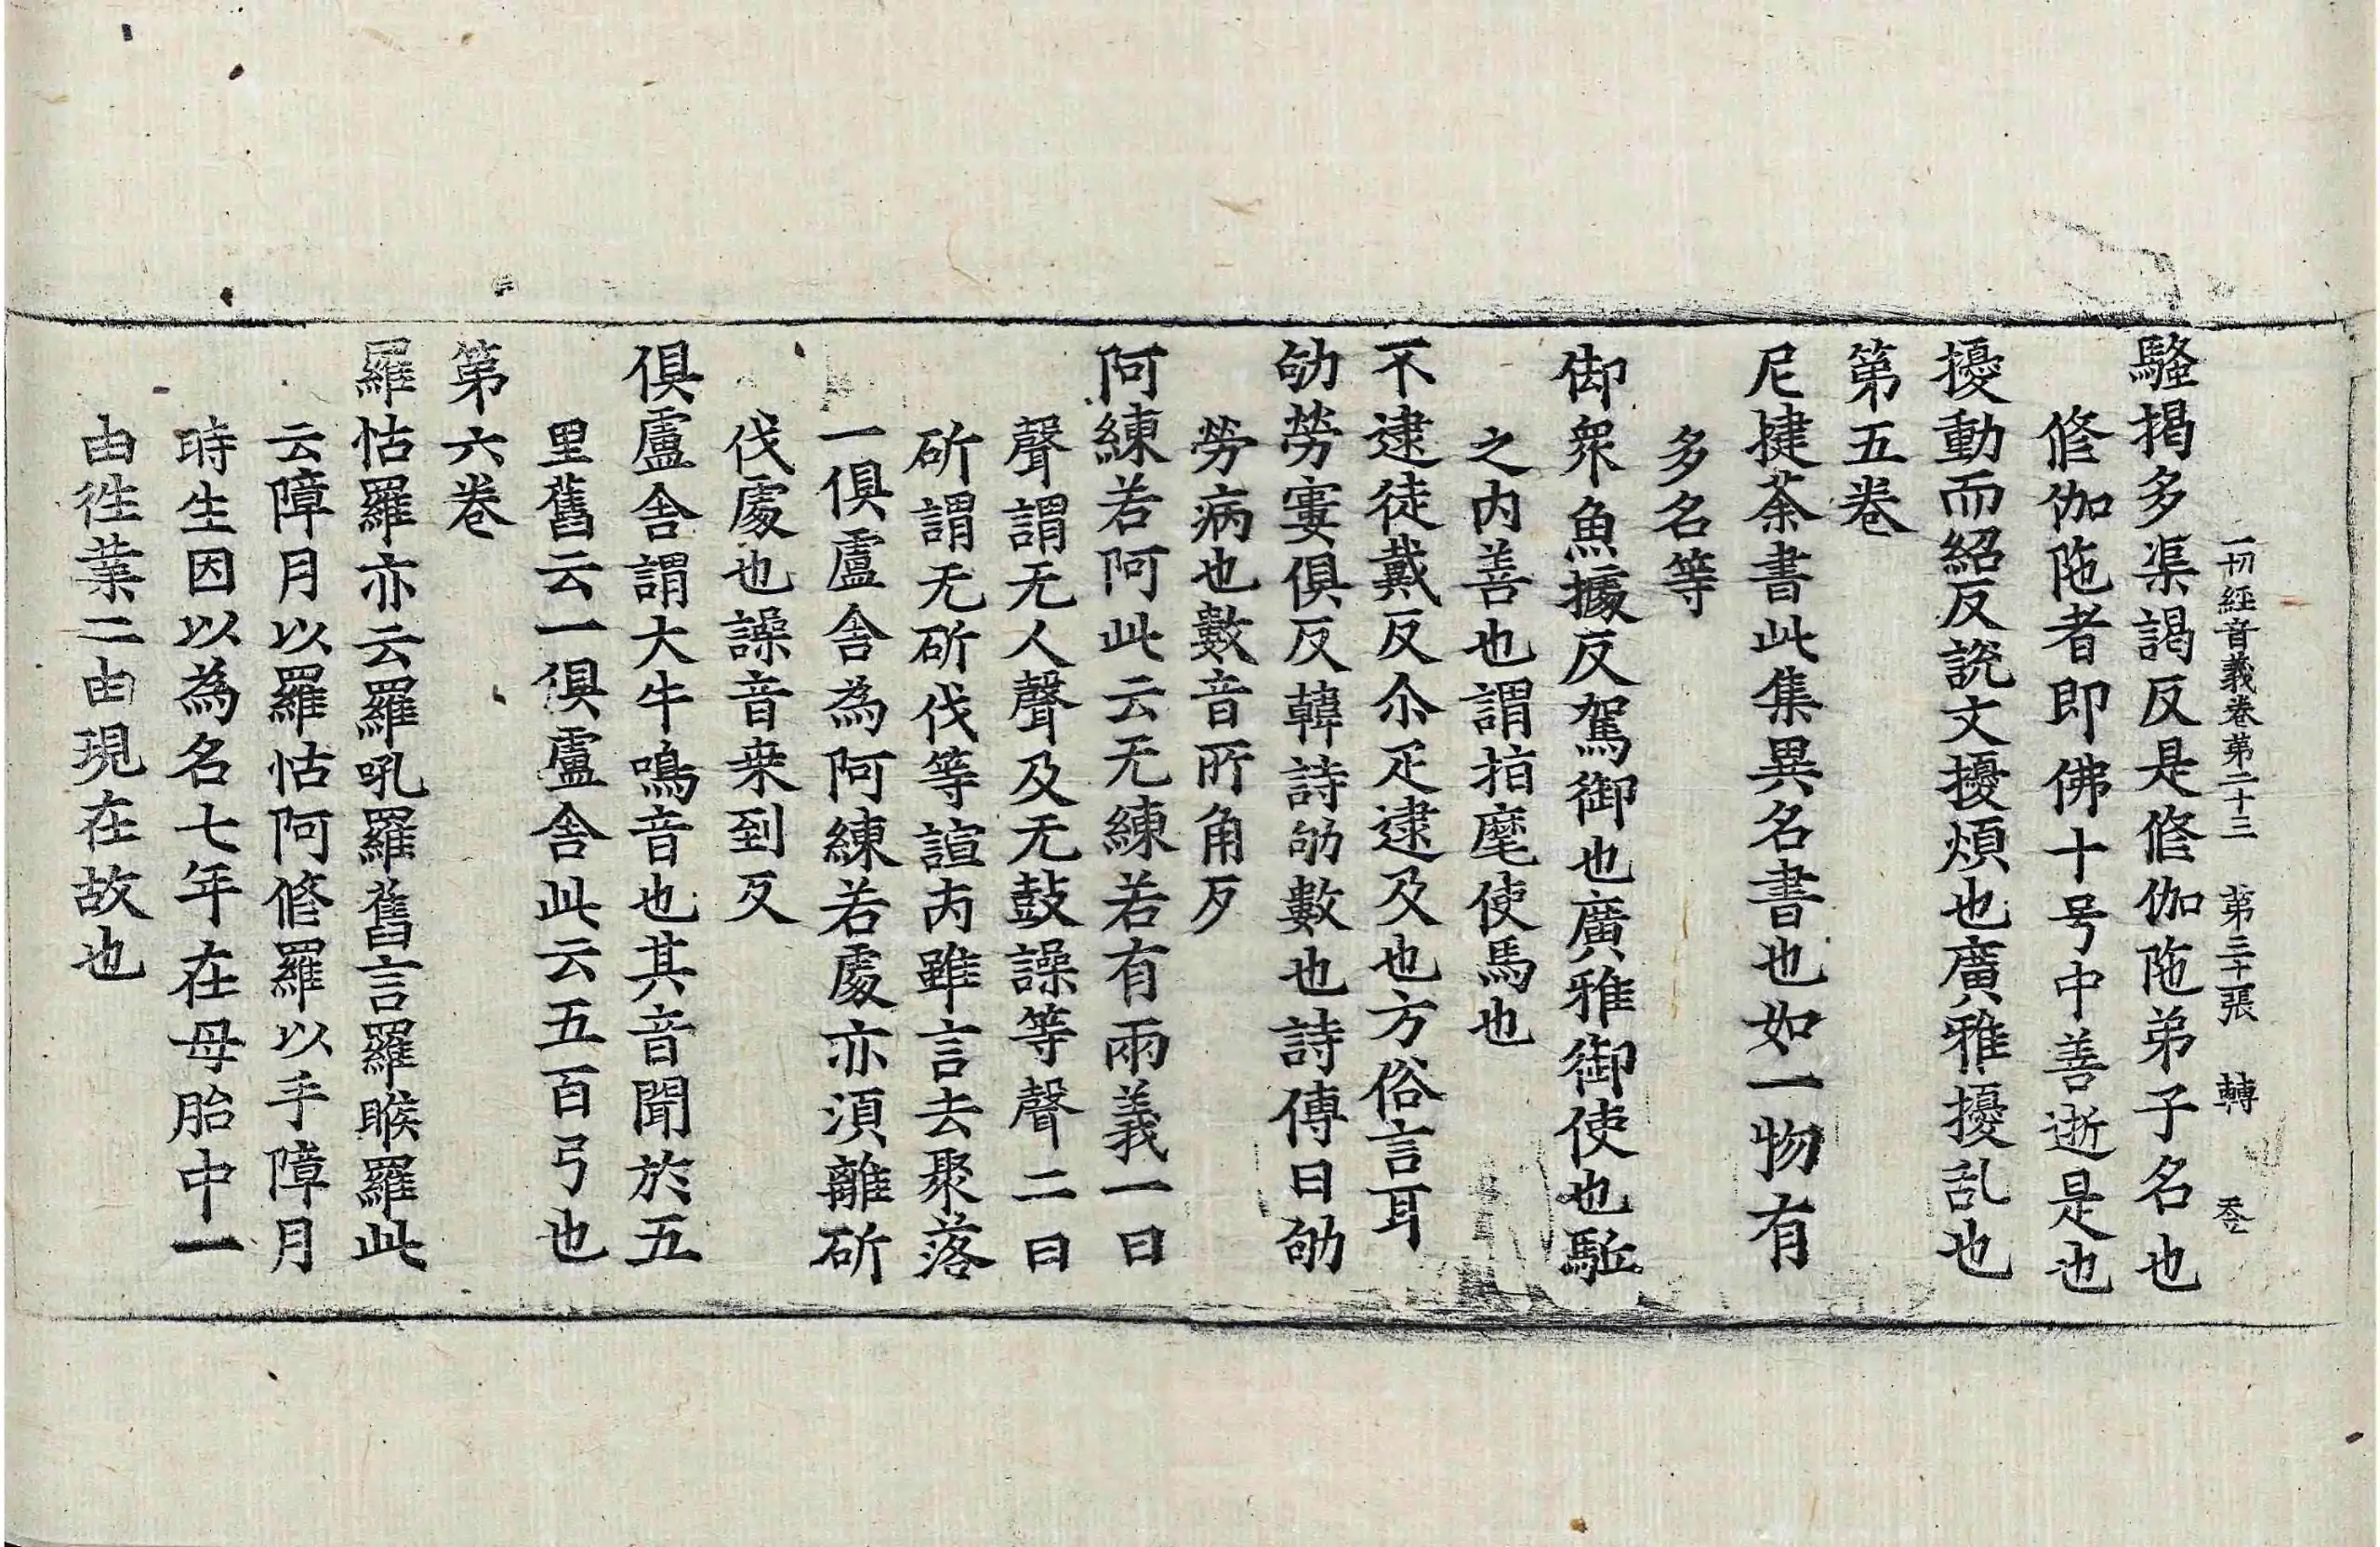 一切經音義卷第二十三 第三十張 轉
騷揭多渠謁反是修伽陁弟子名也
修伽陁者即佛十号中善逝是也
擾動而紹反說文擾煩也廣雅擾亂也
第五卷
尼揵荼書此集異名書也如一物有
多名等
御衆魚據反駕御也廣雅御使也駈
之內善也謂指麾使馬也
不逮徒戴反尒疋逮及也方俗言耳
劬勞寠俱反韓詩劬數也詩傳曰劬
勞病也數音所角歹
阿練若阿此云无練若有兩義一曰
聲謂无人聲及无鼓譟等聲二曰
斫謂无斫伐等諠雖言去聚落
一俱盧舍為阿練若處亦須離斫
伐處也譟音桒到反
俱盧舍謂大牛鳴音也其音聞於五
里舊云一俱盧舍此云五百弓也
第六卷
羅怙羅亦云羅吼羅舊言羅睺羅此
云障月以羅怙阿修羅以手障月
時生因以為名七年在母胎中一
由徃業二由現在故也